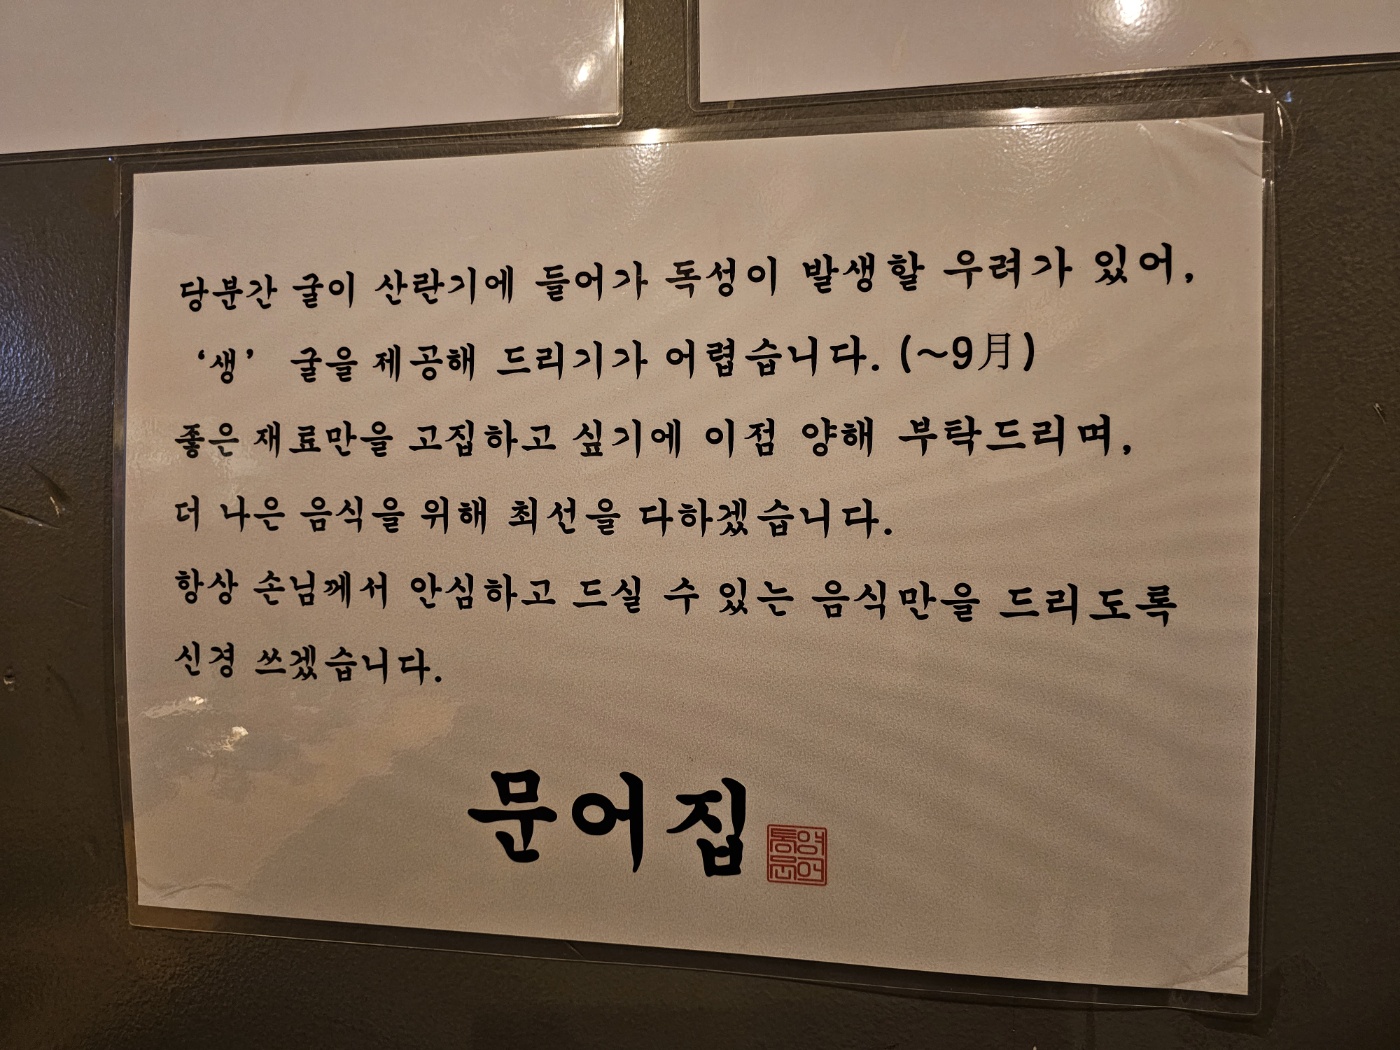 당분간 굴이 산란기에 들어가 독성이 발생할 우려가 있어,
‘생’ 굴을 제공해 드리기가 어렵습니다. (~9月)
좋은 재료만을 고집하고 싶기에 이점 양해 부탁드리며,
더 나은 음식을 위해 최선을 다하겠습니다.
항상 손님께서 안심하고 드실 수 있는 음식만을 드리도록
신경 쓰겠습니다.
문어집
통영
문어